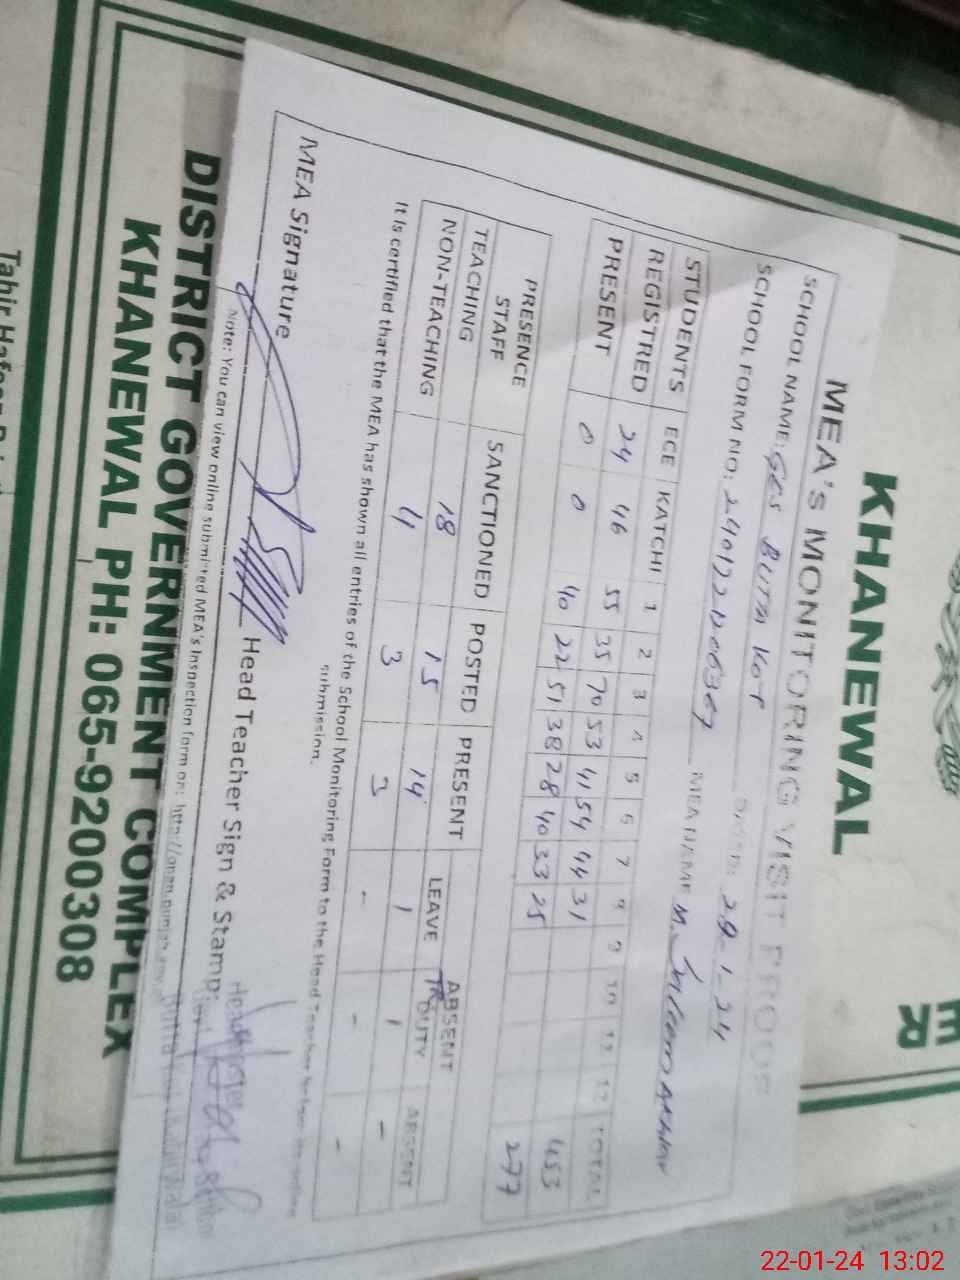 KHANEWAL
MEA's MONITORING VISIT PROOF
SCHOOL NAME: GES BUTA KOT
SCHOOL FORM NO: MEA NAME M.
STUDENTS ECE KATCHI 1 2 3 4 5 6 7 8 9 10 11 12 TOTAL
REGISTRED 24 46 55 35 70 53 41 54 44 31 453
PRESENT 0 0 40 22 51 38 28 40 33 25 277
PRESENCE ABSENT
STAFF SANCTIONED POSTED PRESENT LEAVE DUTY ABSENT
TEACHING 18 15 14 1 1 -
NON-TEACHING 4 3 3 - - -
It is certified that the MEA has shown all entries of the School Monitoring Form to the Head Teacher
submission.
MEA Signature Head Teacher Sign & Stamp:
Note: You can view online submitted MEA's Inspection form on:
DISTRICT GOVERNMENT COMPLEX
KHANEWAL PH: 065-9200308
ER
22-01-24 13:02